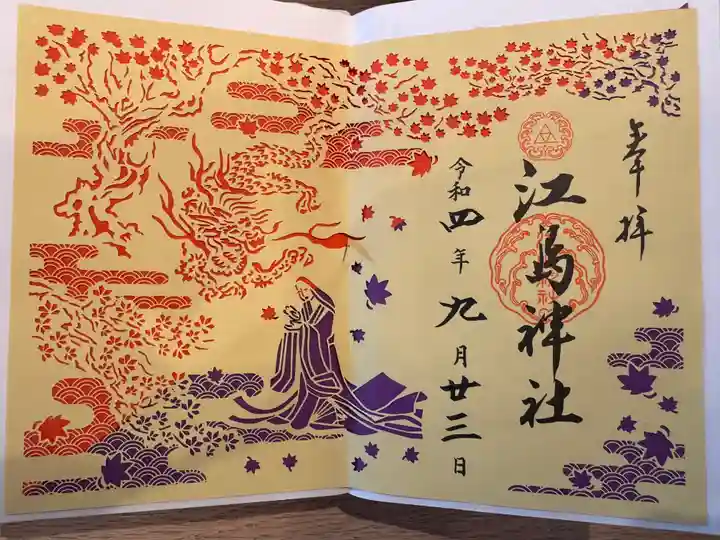 奉拝
江島神社
令和四年九月廿三日